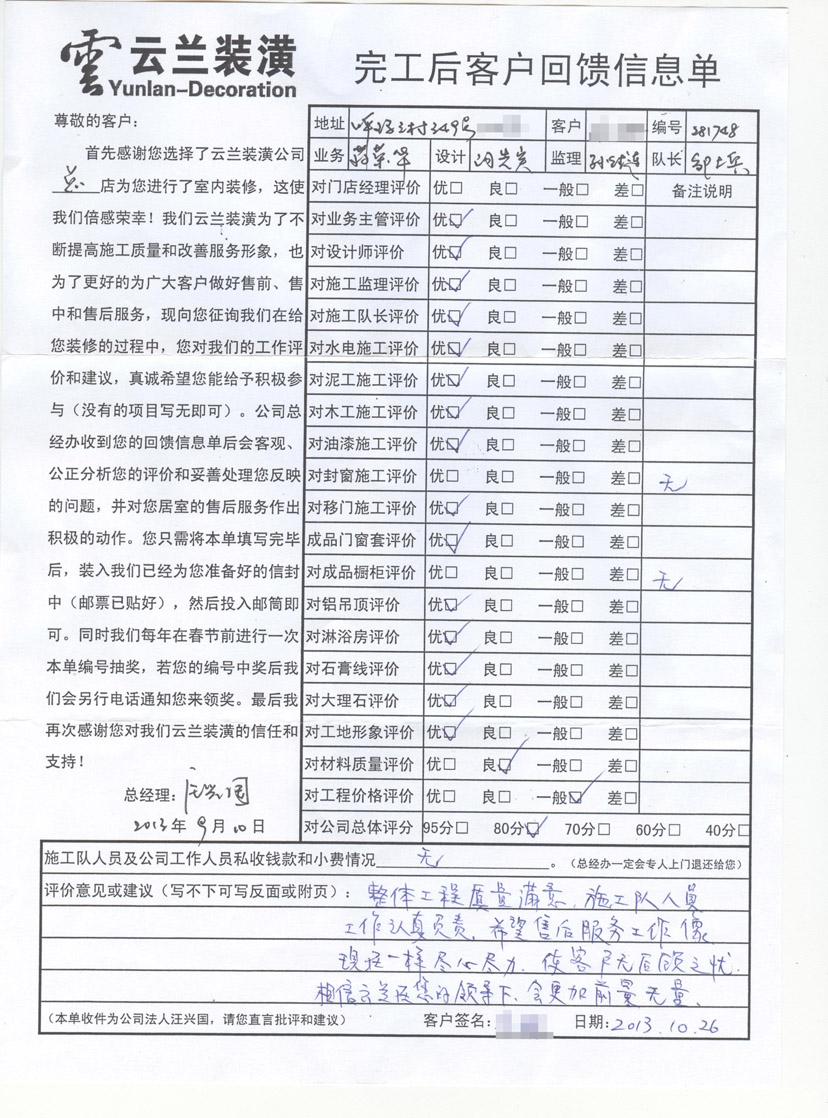 雲 云兰装潢
Yunlan-Decoration
完工后客户回馈信息单
尊敬的客户：
首先感谢您选择了云兰装潢公司
总 店为您进行了室内装修，这使
我们倍感荣幸！我们云兰装潢为了不
断提高施工质量和改善服务形象，也
为了更好的为广大客户做好售前、售
中和售后服务，现向您征询我们在给
您装修的过程中，您对我们的工作评
价和建议，真诚希望您能给予积极参
与（没有的项目写无即可）。公司总
经办收到您的回馈信息单后会客观、
公正分析您的评价和妥善处理您反映
的问题，并对您居室的售后服务作出
积极的动作。您只需将本单填写完毕
后，装入我们已经为您准备好的信封
中（邮票已贴好），然后投入邮筒即
可。同时我们每年在春节前进行一次
本单编号抽奖，若您的编号中奖后我
们会另行电话通知您来领奖。最后我
再次感谢您对我们云兰装潢的信任和
支持！
总经理：
2013年9月10日
地址 村349号 客户 编号 281748
业务 蒋荣华 设计 监理 队长 邹士兵
对门店经理评价 优□ 良□ 一般□ 差□ 备注说明
对业务主管评价 优☑ 良□ 一般□ 差□
对设计师评价 优☑ 良□ 一般□ 差□
对施工监理评价 优☑ 良□ 一般□ 差□
对施工队长评价 优☑ 良□ 一般□ 差□
对水电施工评价 优☑ 良□ 一般□ 差□
对泥工施工评价 优☑ 良□ 一般□ 差□
对木工施工评价 优☑ 良□ 一般□ 差□
对油漆施工评价 优☑ 良□ 一般□ 差□
对封窗施工评价 优□ 良□ 一般□ 差□ 无
对移门施工评价 优☑ 良□ 一般□ 差□
成品门窗套评价 优☑ 良□ 一般□ 差□
对成品橱柜评价 优□ 良□ 一般□ 差□ 无
对铝吊顶评价 优☑ 良□ 一般□ 差□
对淋浴房评价 优☑ 良□ 一般□ 差□
对石膏线评价 优☑ 良□ 一般□ 差□
对大理石评价 优☑ 良□ 一般□ 差□
对工地形象评价 优☑ 良□ 一般□ 差□
对材料质量评价 优□ 良☑ 一般□ 差□
对工程价格评价 优□ 良□ 一般☑ 差□
对公司总体评分 95分□ 80分☑ 70分□ 60分□ 40分□
施工队人员及公司工作人员私收钱款和小费情况 无 。（总经办一定会专人上门退还给您）
评价意见或建议（写不下可写反面或附页）：整体工程质量满意，施工队人员
工作认真负责，希望售后服务工作像
现在一样尽心尽力，使客户无后顾之忧．
相信云兰在您的领导下，会更加前景无量。
（本单收件为公司法人汪兴国，请您直言批评和建议） 客户签名： 日期：2013.10.26